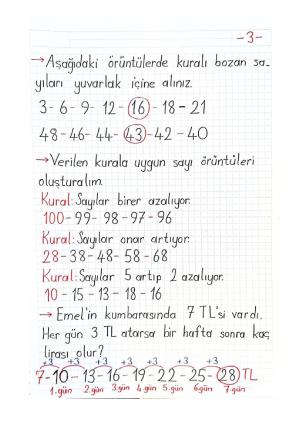 -3-
→Aşağıdaki örüntülerde kuralı bozan sa-
yıları yuvarlak içine alınız.
3-6-9-12-16-18-21
48-46-44-43-42-40
→Verilen kurala uygun sayı örüntüleri
oluşturalım.
Kural: Sayılar birer azalıyor.
100-99-98-97-96
Kural: Sayılar onar artıyor.
28-38-48-58-68
Kural: Sayılar 5 artıp 2 azalıyor.
10-15-13-18-16
→Emel'in kumbarasında 7 TL'si vardı.
Her gün 3 TL atarsa bir hafta sonra kaç
lirası olur?
+3 +3 +3 +3 +3 +3 +3
7-10-13-16-19-22-25-28 TL
1.gün 2.gün 3.gün 4.gün 5.gün 6.gün 7.gün